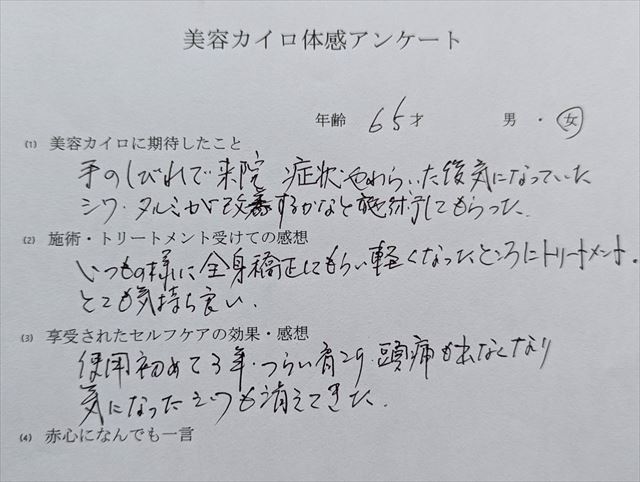 美容カイロ体感アンケート
年齢 65才 男・女
(1) 美容カイロに期待したこと
手のしびれで来院 症状やわらいた後気になっていた
シワ・タルミが改善するかなと施術してもらった.
(2) 施術・トリートメント受けての感想
いつもの様に全身矯正してもらい軽くなったところにトリートメント。
とても気持ち良い.
(3) 享受されたセルフケアの効果・感想
使用初めて3年・つらい肩こり・頭痛も出なくなり
気になったシワも消えてきた.
(4) 赤心になんでも一言